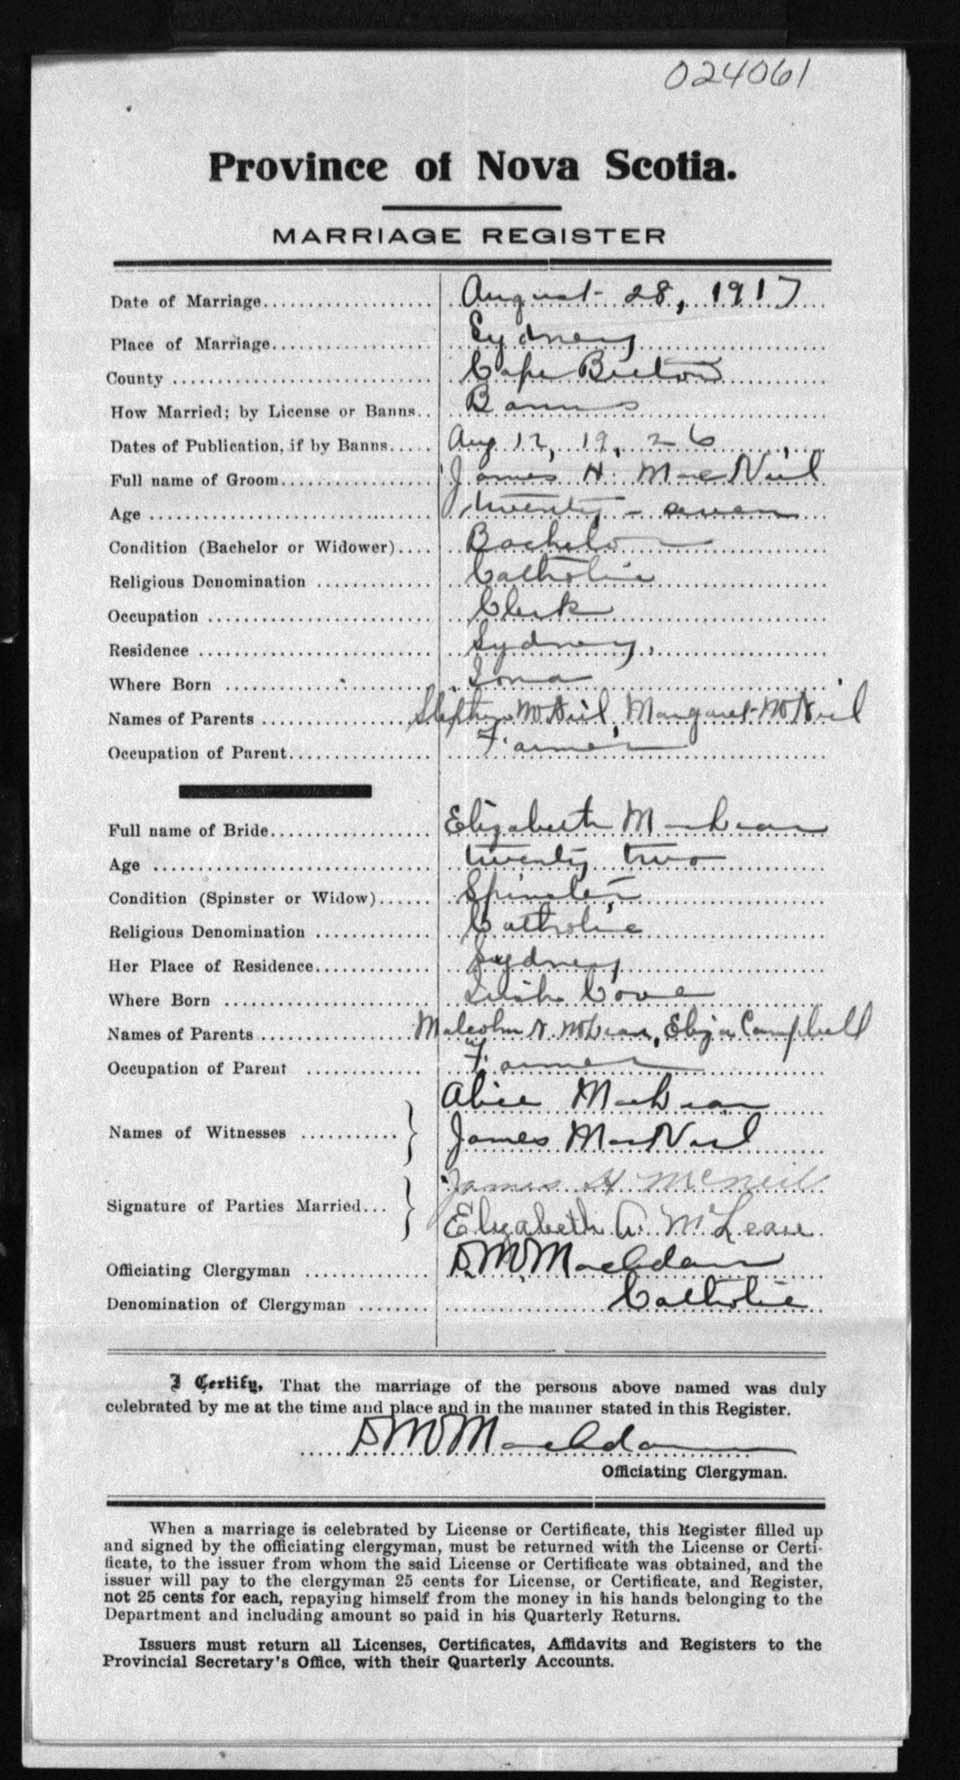 024061
Province of Nova Scotia.
MARRIAGE REGISTER
Date of Marriage.................... August 28, 1917
Place of Marriage................... Sydney
County .............................. Cape Breton
How Married; by License or Banns.. Banns
Dates of Publication, if by Banns..... Aug 12, 19, 26
Full name of Groom................. James H. MacNeil
Age ................................. twenty-seven
Condition (Bachelor or Widower).... Bachelor
Religious Denomination ............. Catholic
Occupation .......................... Clerk
Residence ........................... Sydney
Where Born ......................... Iona
Names of Parents ................... Stephen McNeil, Margaret McNeil
Occupation of Parent................ Farmer
Full name of Bride.................. Elizabeth MacLean
Age ................................. twenty two
Condition (Spinster or Widow)...... Spinster
Religious Denomination ............. Catholic
Her Place of Residence............. Sydney
Where Born ......................... Irish Cove
Names of Parents ................... Malcolm N. McLean, Eliza Campbell
Occupation of Parent ............... Farmer
Alice MacLean
Names of Witnesses ...........
James MacNeil
James H McNeil
Signature of Parties Married...
Elizabeth A. McLean
Officiating Clergyman .............. D. M. MacAdam
Denomination of Clergyman ........ Catholic
I Certify, That the marriage of the persons above named was duly
celebrated by me at the time and place and in the manner stated in this Register.
D M MacAdam
Officiating Clergyman.
When a marriage is celebrated by License or Certificate, this Register filled up
and signed by the officiating clergyman, must be returned with the License or Certi-
ficate, to the issuer from whom the said License or Certificate was obtained, and the
issuer will pay to the clergyman 25 cents for License, or Certificate, and Register,
not 25 cents for each, repaying himself from the money in his hands belonging to the
Department and including amount so paid in his Quarterly Returns.
Issuers must return all Licenses, Certificates, Affidavits and Registers to the
Provincial Secretary's Office, with their Quarterly Accounts.